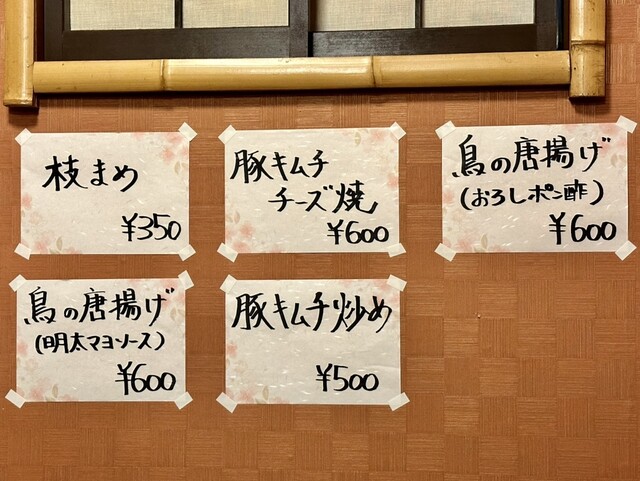 枝まめ
¥350
豚キムチ
チーズ焼
¥600
鳥の唐揚げ
(おろしポン酢)
¥600
鳥の唐揚げ
(明太マヨソース)
¥600
豚キムチ炒め
¥500